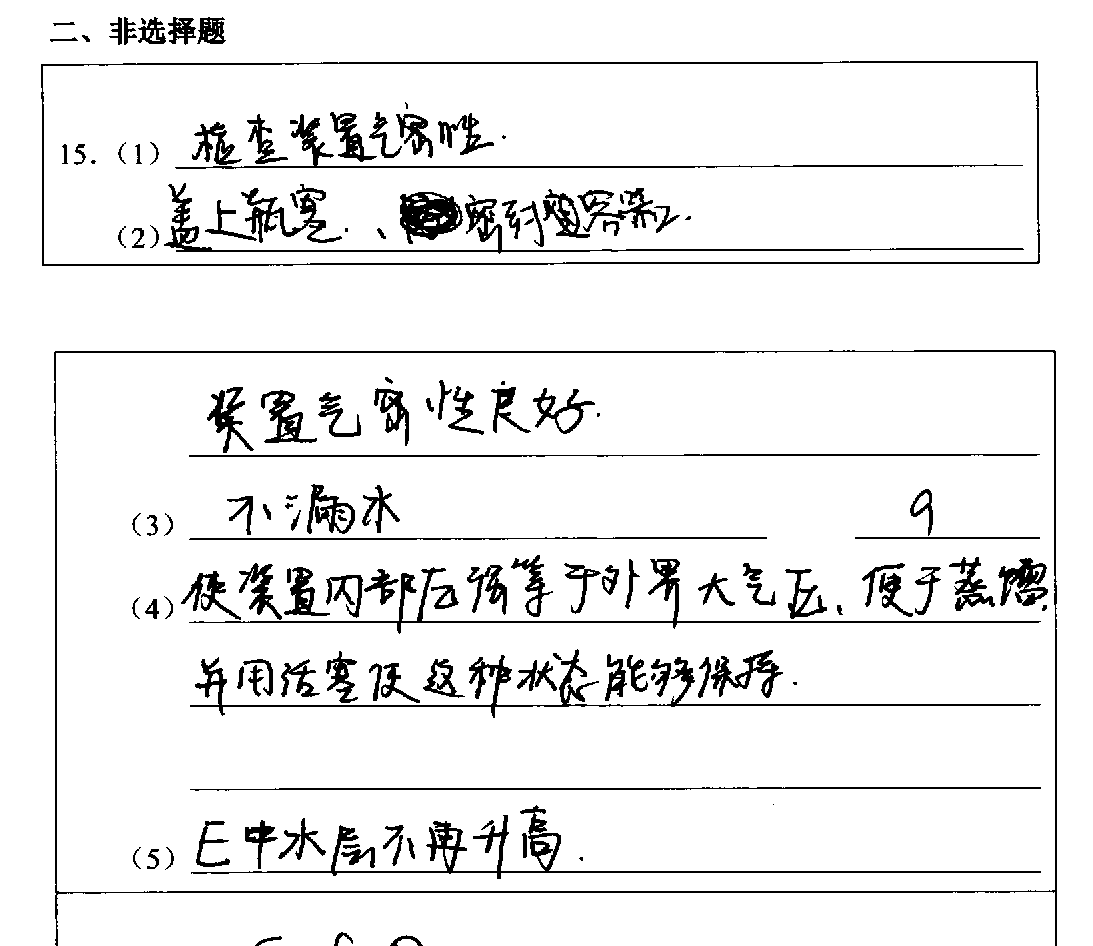 二、非选择题
15.（1）检查装置气密性.
（2）盖上瓶塞.、密封容器.
装置气密性良好.
（3）不漏水 9
（4）使装置内部压强等于外界大气压、便于蒸馏
并用活塞使这种状态能够保持.
（5）E中水层不再升高.